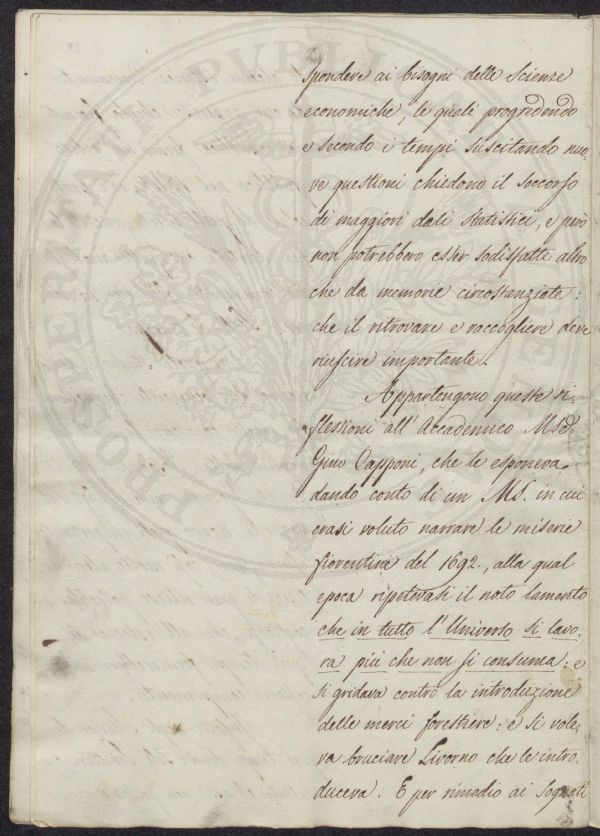 spondere ai bisogni delle Scienze
economiche, le quali progredendo
e secondo i tempi suscitando nuo-
ve questioni chiedono il soccorso
di maggiori dati statistici, e però
non potrebbero esser sodisfatte altro
che da memorie circostanziate:
che il ritrovare e raccogliere deve
riuscire importante.
Appartengono queste ri-
flessioni all' Accademico Mse
Gino Capponi, che le esponeva
dando conto di un MS. in cui
erasi voluto narrare le miserie
fiorentine del 1692., alla qual
epoca ripetevasi il noto lamento
che in tutto l'Universo si lavo-
ra più che non si consuma: e
si gridava contro la introduzione
delle merci forestiere: e si vole-
va bruciare Livorno che le intro-
duceva. E per rimedio ai sognati
PROSPERITATI PVBLICAE